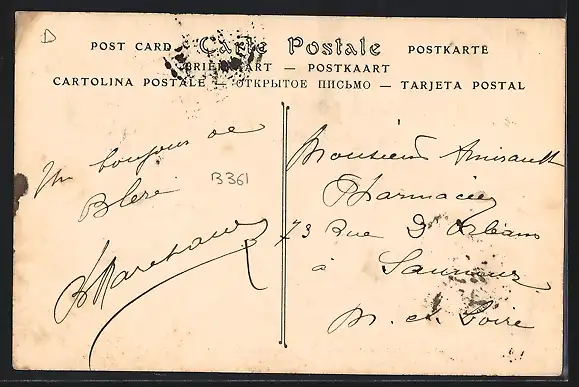 D
POST CARD — Carte Postale POSTKARTE
BRIEFKAART — POSTKAART
CARTOLINA POSTALE — ОТКРЫТОЕ ПИСЬМО — TARJETA POSTAL
Un bonjour de
Bléré
B361
Monsieur Amirault
Pharmacien
73 Rue D'Orléans
à Saumur
M. et Loire